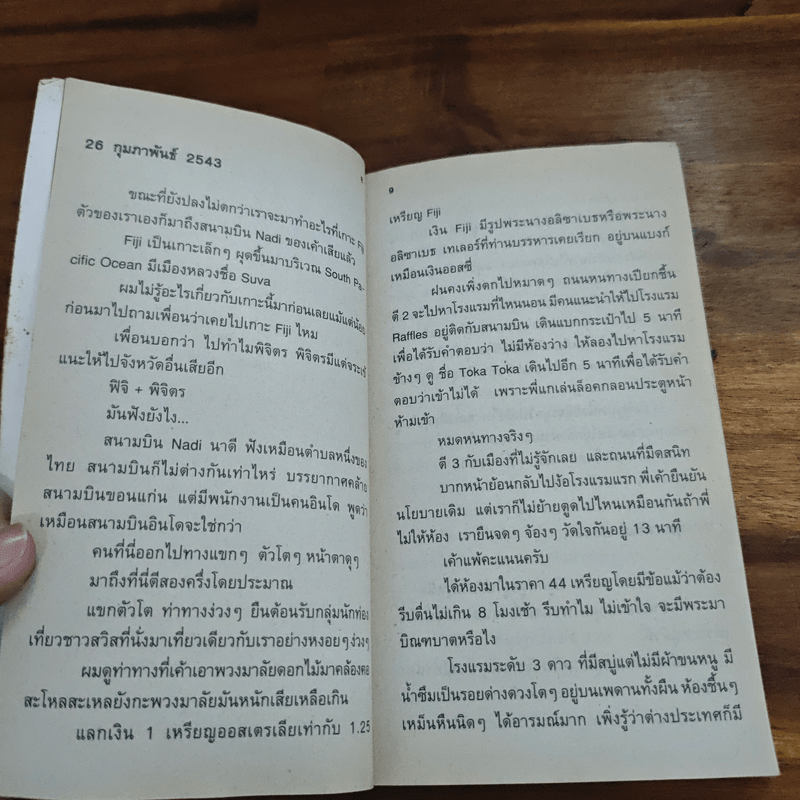 26 กุมภาพันธ์ 2543
ขณะที่ยังปลงไม่ตกว่าเราจะมาทำอะไรที่เกาะ Fiji
ตัวของเราเองก็มาถึงสนามบิน Nadi ของเค้าเสียแล้ว
Fiji เป็นเกาะเล็กๆ ผุดขึ้นมาบริเวณ South Pa-
cific Ocean มีเมืองหลวงชื่อ Suva
ผมไม่รู้อะไรเกี่ยวกับเกาะนี้มาก่อนเลยแม้แต่น้อย
ก่อนมาไปถามเพื่อนว่าเคยไปเกาะ Fiji ไหม
เพื่อนบอกว่า ไปทำไมพิจิตร พิจิตรมีแต่จระเข้
แนะให้ไปจังหวัดอื่นเสียอีก
ฟิจิ + พิจิตร
มันฟังยังไง...
สนามบิน Nadi นาดี ฟังเหมือนตำบลหนึ่งของ
ไทย สนามบินก็ไม่ต่างกันเท่าไหร่ บรรยากาศคล้าย
สนามบินขอนแก่น แต่มีพนักงานเป็นคนอินโด พูดว่า
เหมือนสนามบินอินโดจะใช่กว่า
คนที่นี่ออกไปทางแขกๆ ตัวโตๆ หน้าตาดุๆ
มาถึงที่นี่ตีสองครึ่งโดยประมาณ
แขกตัวโต ท่าทางง่วงๆ ยืนต้อนรับกลุ่มนักท่อง
เที่ยวชาวสวิสที่นั่งมาเที่ยวเดียวกับเราอย่างหงอยๆง่วงๆ
ผมดูท่าทางที่เค้าเอาพวงมาลัยดอกไม้มาคล้องคอ
สะโหลสะเหลยังกะพวงมาลัยมันหนักเสียเหลือเกิน
แลกเงิน 1 เหรียญออสเตรเลียเท่ากับ 1.25
9
เหรียญ Fiji
เงิน Fiji มีรูปพระนางอลิซาเบธหรือพระนาง
อลิซาเบธ เทเลอร์ที่ท่านบรรหารเคยเรียก อยู่บนแบงก์
เหมือนเงินออสซี่
ฝนคงเพิ่งตกไปหมาดๆ ถนนหนทางเปียกชื้น
ตี 2 จะไปหาโรงแรมที่ไหนนอน มีคนแนะนำให้ไปโรงแรม
Raffles อยู่ติดกับสนามบิน เดินแบกกระเป๋าไป 5 นาที
เพื่อได้รับคำตอบว่า ไม่มีห้องว่าง ให้ลองไปหาโรงแรม
ข้างๆ ดู ชื่อ Toka Toka เดินไปอีก 5 นาทีเพื่อได้รับคำ
ตอบว่าเข้าไม่ได้ เพราะพี่แกเล่นล็อคกลอนประตูหน้า
ห้ามเข้า
หมดหนทางจริงๆ
ตี 3 กับเมืองที่ไม่รู้จักเลย และถนนที่มืดสนิท
บากหน้าย้อนกลับไปง้อโรงแรมแรก พี่เค้ายืนยัน
นโยบายเดิม แต่เราก็ไม่ย้ายตูดไปไหนเหมือนกันถ้าพี่
ไม่ให้ห้อง เรายืนจดๆ จ้องๆ วัดใจกันอยู่ 13 นาที
เค้าแพ้คะแนนครับ
ได้ห้องมาในราคา 44 เหรียญโดยมีข้อแม้ว่าต้อง
รีบตื่นไม่เกิน 8 โมงเช้า รีบทำไม ไม่เข้าใจ จะมีพระมา
บิณฑบาตหรือไง
โรงแรมระดับ 3 ดาว ที่มีสบู่แต่ไม่มีผ้าขนหนู มี
น้ำซึมเป็นรอยด่างดวงโตๆ อยู่บนเพดานทั้งผืน ห้องชื้นๆ
เหม็นหืนนิดๆ ได้อารมณ์มาก เพิ่งรู้ว่าต่างประเทศก็มี